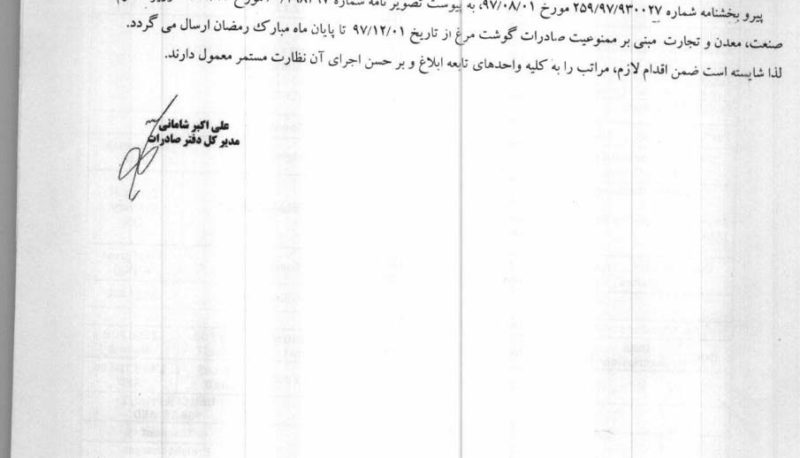 پیرو بخشنامه شماره ۲۵۹/۹۷/۹۳۰۰۲۷ مورخ ۹۷/۰۸/۰۱، به پیوست تصویر نامه شماره
صنعت، معدن و تجارت مبنی بر ممنوعیت صادرات گوشت مرغ از تاریخ ۹۷/۱۲/۰۱ تا پایان ماه مبارک رمضان ارسال می گردد.
لذا شایسته است ضمن اقدام لازم، مراتب را به کلیه واحدهای تابعه ابلاغ و بر حسن اجرای آن نظارت مستمر معمول دارند.
علی اکبر شامانی
مدیر کل دفتر صادرات